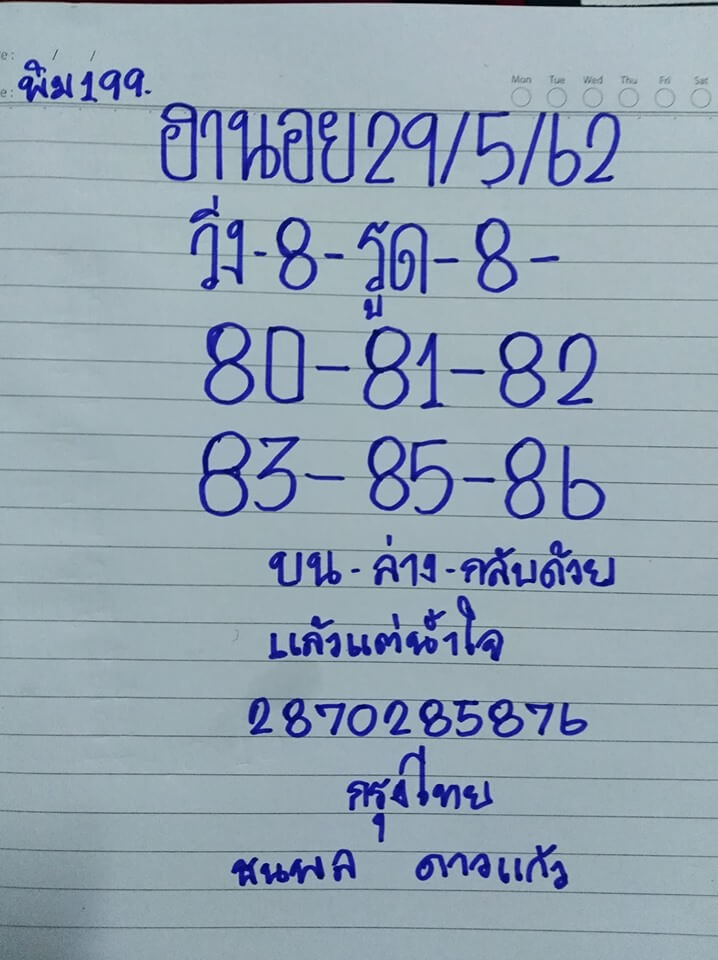 พิม199.
Mon Tue Wed Thu Fri Sat
ฮานอย29/5/62
วิ่ง-8-รูด-8-
80-81-82
83-85-86
บน-ล่าง-กลับด้วย
แล้วแต่น้ำใจ
2870285876
กรุงไทย
ชนพล ดาวแก้ว